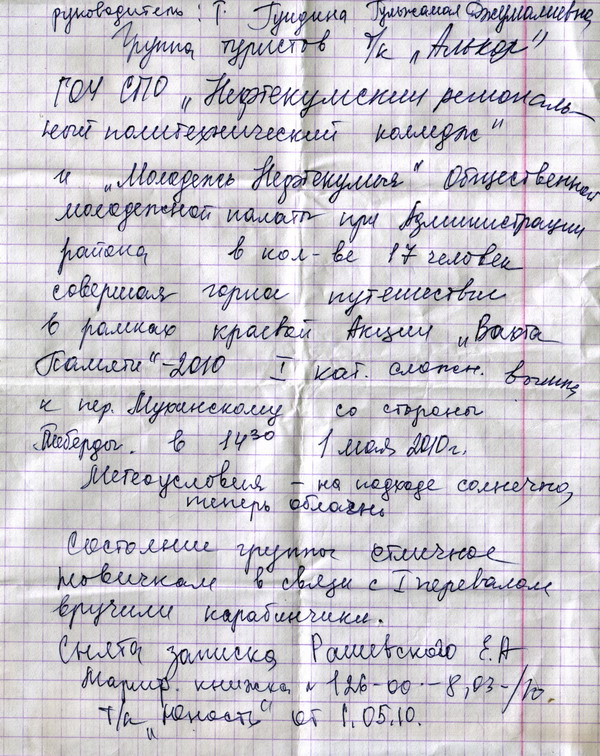 руководитель: Т. Гундина Гульжамал Джумалиевна
Группа туристов т/к „Алькор"
ГОУ СПО „Нефтекумский региональ-
ный политехнический колледж"
и „Молодежь Нефтекумья" Общественной
молодежной палаты при Администрации
района в кол-ве 17 человек
совершая горное путешествие
в рамках краевой Акции „Вахта
Памяти"-2010 I кат. сложн. вышла
к пер. Мухинскому со стороны
Теберды. в 14 30 1 мая 2010г.
Метеоусловия – на подходе солнечно,
теперь облачно
Состояние группы отличное
Новичкам в связи с I перевалом
вручили карабинчики.
Снята записка Рашевского Е.А
Маршр. книжка № 126-00-8,03-/10.
т/к „Юность" от 1.05.10.